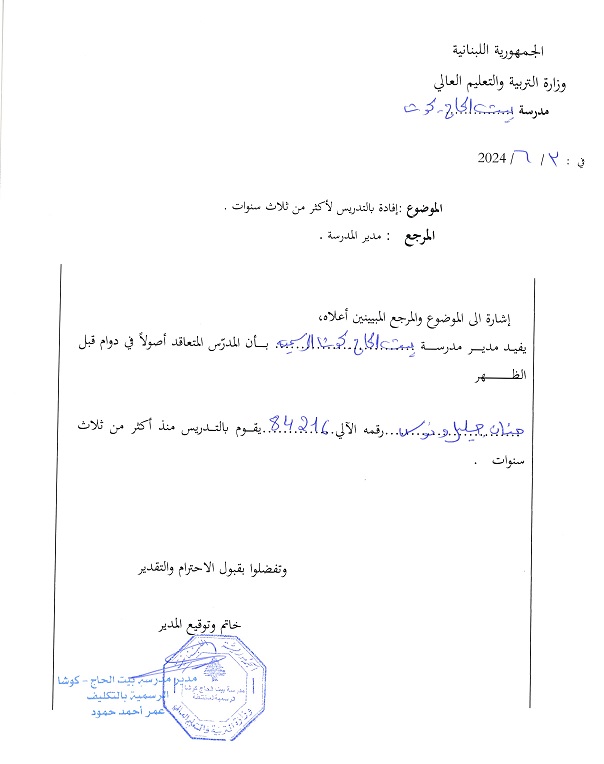 الجمهورية اللبنانية
وزارة التربية والتعليم العالي
مدرسة بيت الحاج - كوشا
في : ٣ / ٦ / 2024
الموضوع : إفادة بالتدريس لأكثر من ثلاث سنوات .
المرجع : مدير المدرسة .
إشارة الى الموضوع والمرجع المبيينين أعلاه،
يفيد مدير مدرسة بيت الحاج - كوشا الرسمية بأن المدرّس المتعاقد أصولاً في دوام قبل
الظهر
حنان رقمه الآلي 84216 يقوم بالتدريس منذ أكثر من ثلاث
سنوات .
وتفضلوا بقبول الاحترام والتقدير
خاتم وتوقيع المدير
مدير مدرسة بيت الحاج - كوشا
الرسمية بالتكليف
عمر أحمد حمود
مدرسة بيت الحاج كوشا
وزارة التربية والتعليم العالي